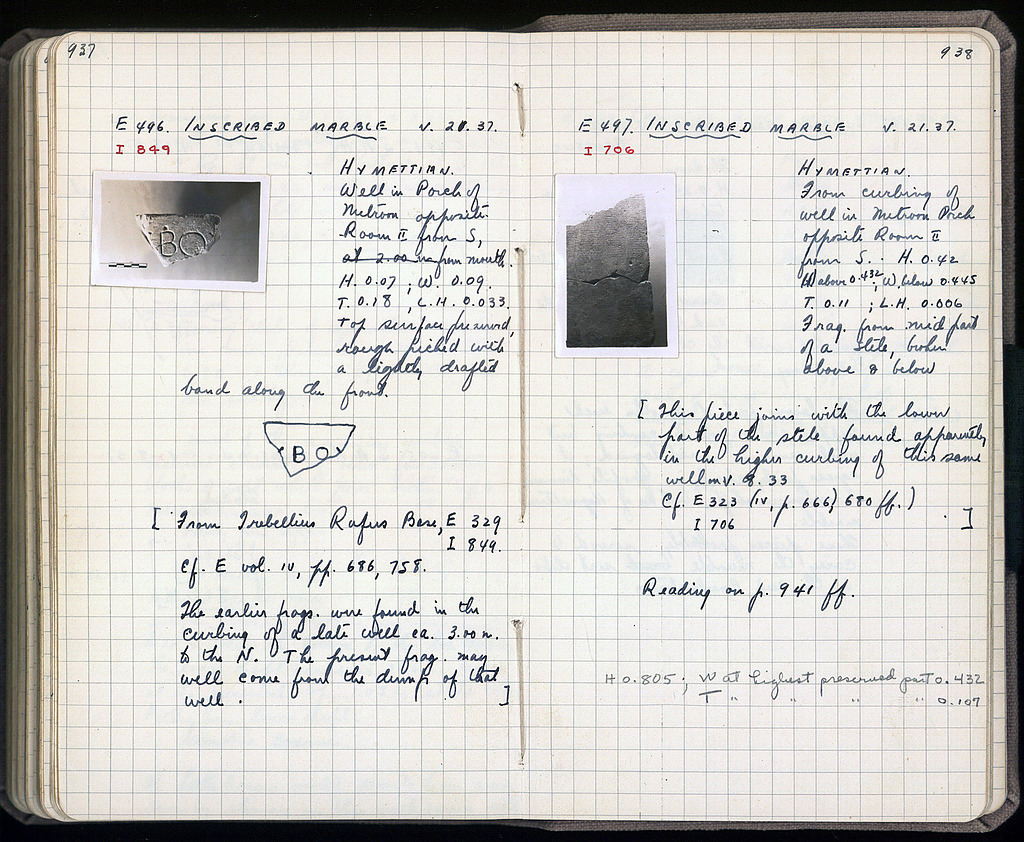 937
E 496. INSCRIBED MARBLE V. 21. 37.
I 849
HYMETTIAN.
Well in Porch of
Metroon opposite
Room II from S,
at 2.00 m from mouth.
H. 0.07 ; W. 0.09.
T. 0.18 , L.H. 0.033.
Top surface preserved,
rough picked with
a lightly drafted
band along the front.
BO
BO
[ From Trebellius Rufus Base, E 329
I 849.
Cf. E vol. IV, pp. 686, 758.
The earlier frags. were found in the
curbing of a late well ca. 3.00 m.
to the N. The present frag. may
well come from the dump of that
well. ]
938
E 497. INSCRIBED MARBLE V. 21. 37.
I 706
HYMETTIAN.
From curbing of
well in Metroon Porch
opposite Room II
from S. H. 0.42
W above 0.432; W. below 0.445
T. 0.11 ; L.H. 0.006
Frag. from mid part
of a stele, broken
above & below
[ This piece joins with the lower
part of the stele found apparently
in the higher curbing of this same
well on V. 8. 33
Cf. E 323 (IV, p. 666, 680 ff.)
I 706 ]
Reading on p. 941 ff.
H 0.805 ; W at highest preserved part 0.432
T " " " " 0.107